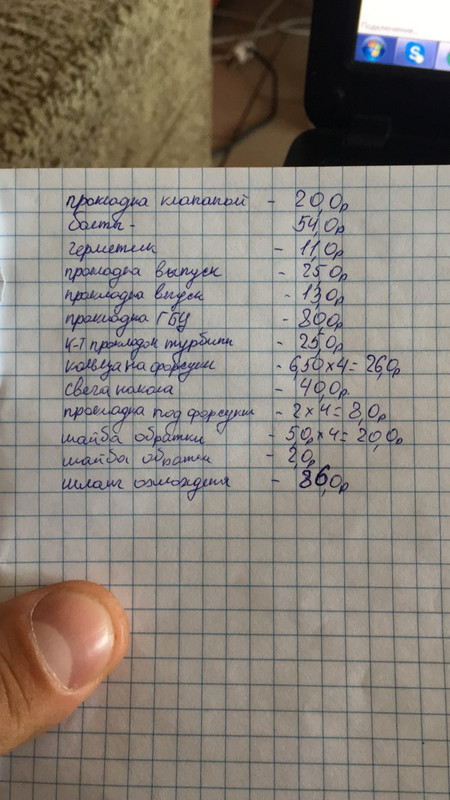 Подключение...
прокладка клапаной - 20,0р
болты - 54,0р
герметик - 11,0р
прокладка выпуск - 25,0р
прокладка впуск - 13,0р
прокладка ГБЦ - 80,0р
К-т прокладок турбины - 25,0р
кольца на форсунки - 6,50 х 4 = 26,0р
свеча накала - 40,0р.
прокладка под форсунки - 2 х 4 = 8,0р
шайба обратки - 5,0р х 4 = 20,0р
шайба обратки - 2,0р
шланг охлождения - 86,0р